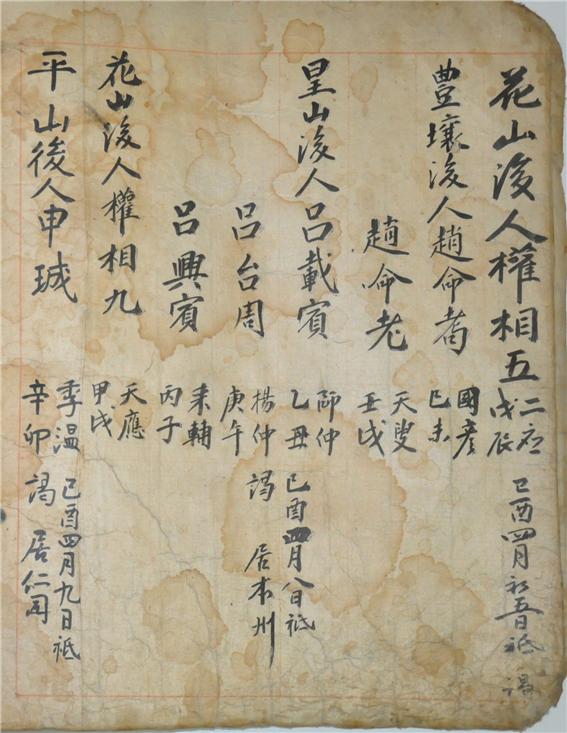 花山後人權相五 二應 戊辰 己酉四月初五日祗謁
豊壤後人趙命耉 國彥 己未
趙命老 天叟 壬戌
星山後人呂載賓 師仲 乙丑 己酉四月八日祗
呂台周 楊仲 庚午 謁 居本州
呂興賓 耒輔 丙子
花山後人權相九 天應 甲戌
平山後人申珹 季温 己酉四月九日祗
辛卯 謁 居仁同